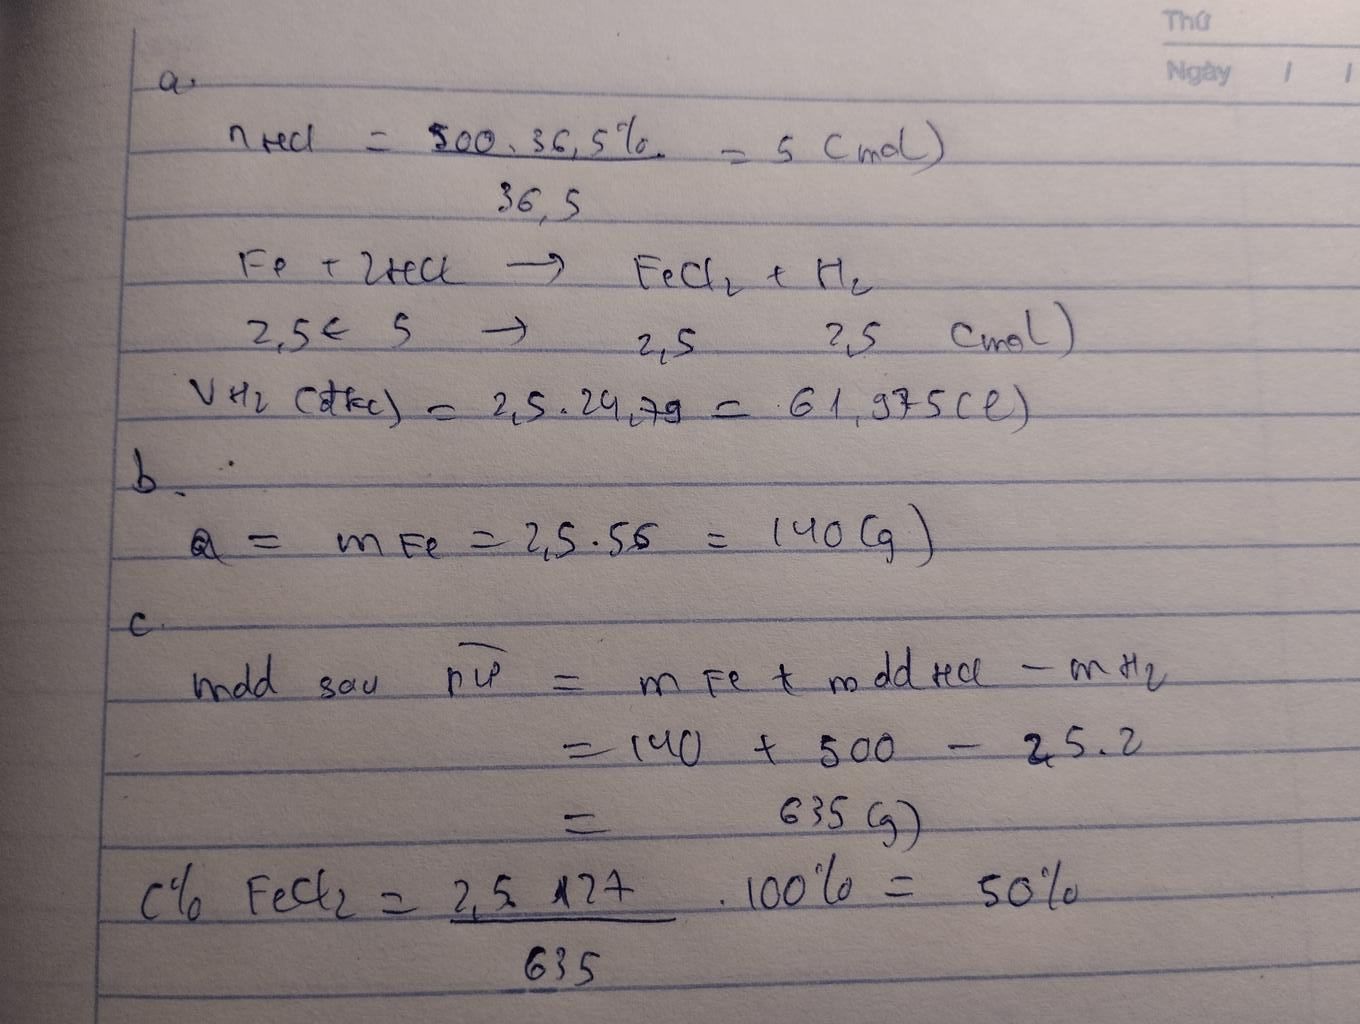 Thứ
Ngày / /
a.
nHCl = 500.36,5% = 5 (mol)
36,5
Fe + 2HCl → FeCl2 + H2
2,5 ← 5 → 2,5 2,5 (mol)
VH2 (đkc) = 2,5.24,79 = 61,975(l)
b.
a = mFe = 2,5.56 = 140(g)
c.
mdd sau pư = mFe + mddHCl - mH2
= 140 + 500 - 2,5.2
= 635(g)
C% FeCl2 = 2,5.127 .100% = 50%
635